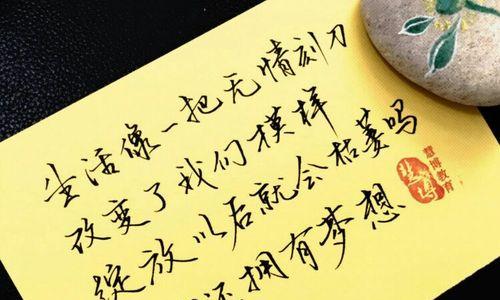 生活像一把无情刻刀
改变了我们模样
绽放以后就会枯萎吗
还拥有梦想
慧博教育